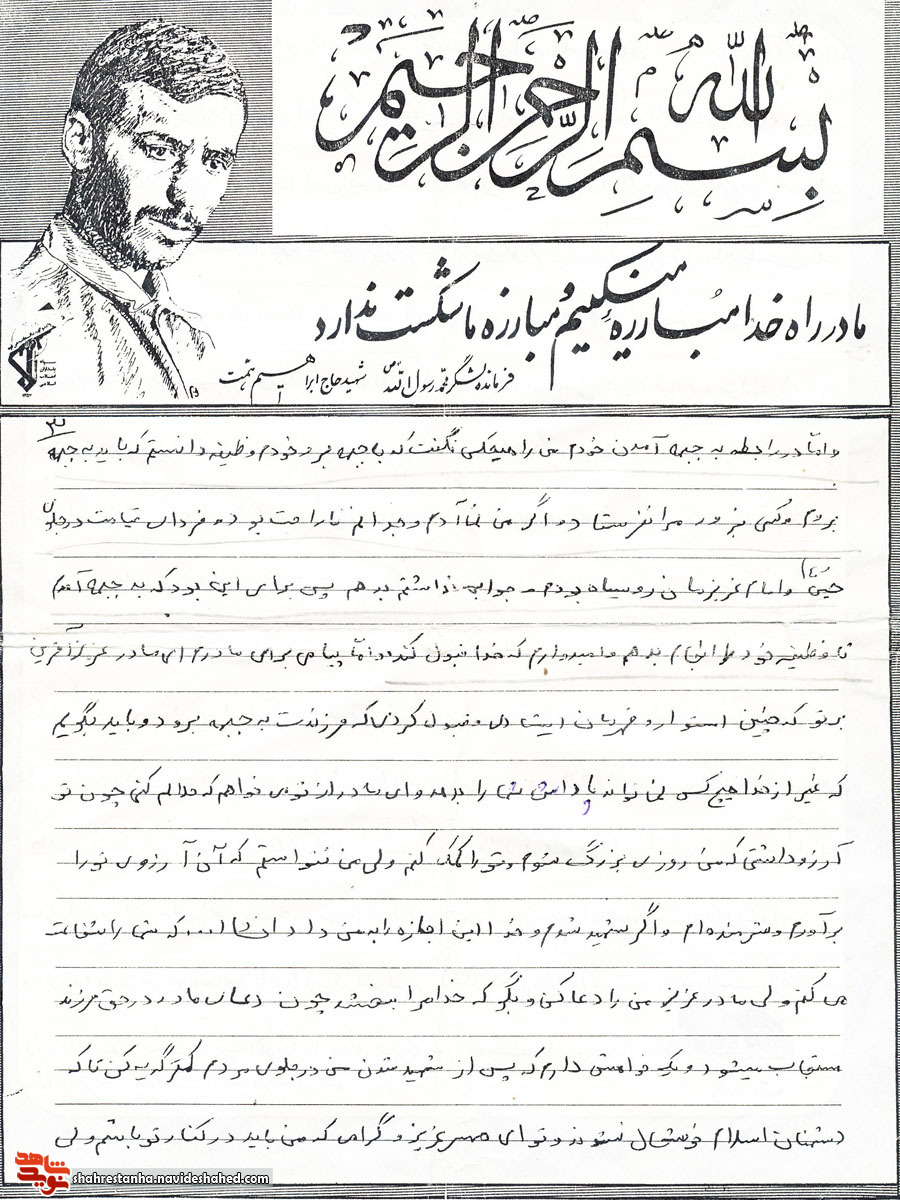 بسم الله الرحمن الرحیم
ما در راه خدا مبارزه میکنیم و مبارزه ما شکست ندارد
فرمانده لشگر محمد رسول الله (ص) شهید حاج ابراهیم همت
۳
و امّا در رابطه به جبهه آمدن خودم من را هیچکس نگفت که به جبهه برو خودم وظیفه دانستم که باید به جبهه
بروم و کسی بزور مرا نفرستاد و اگر من نمی‌آمدم وجدانم ناراحت بود و فردای قیامت در جلوی
حسین (ع) و امام عزیزمان روسیاه بودم و جوابی نداشتم بدهم پس برای این بود که به جبهه آمدم
تا وظیفه خود را انجام بدهم و امیدوارم که خدا قبول کند و امّا پیامی برای مادرم ای مادر عزیز آفرین
بر تو که چنین استوار و قهرمان ایستادی و قبول کردی که فرزندت به جبهه برود و باید بگویم
که غیر از خدا هیچ کس نمی تواند پاداش شما را بدهد و ای مادر از تو می خواهم که حلالم کنی چون تو
آرزو داشتی که من روزی بزرگ شوم و تو را کمک کنم ولی من نتوانستم که آن آرزوی تو را
برآورم و شرمنده ام و اگر شهید شدم و خدا این اجازه را به من داد انشاالله که شما را شفاعت
می کنم ولی مادر عزیز من را دعا کن و بگو که خدا مرا ببخشد چون دعای مادر در حق فرزند
مستجاب میشود و یک خواهشی دارم که پس از شهید شدن من در جلوی مردم کمتر گریه کن تا که
دشمنان اسلام خوشحال نشوند و تو ای همسر عزیز و گرامی که من باید در کنار تو باشم ولی
نوید شاهد
shahrestanha.navideshahed.com